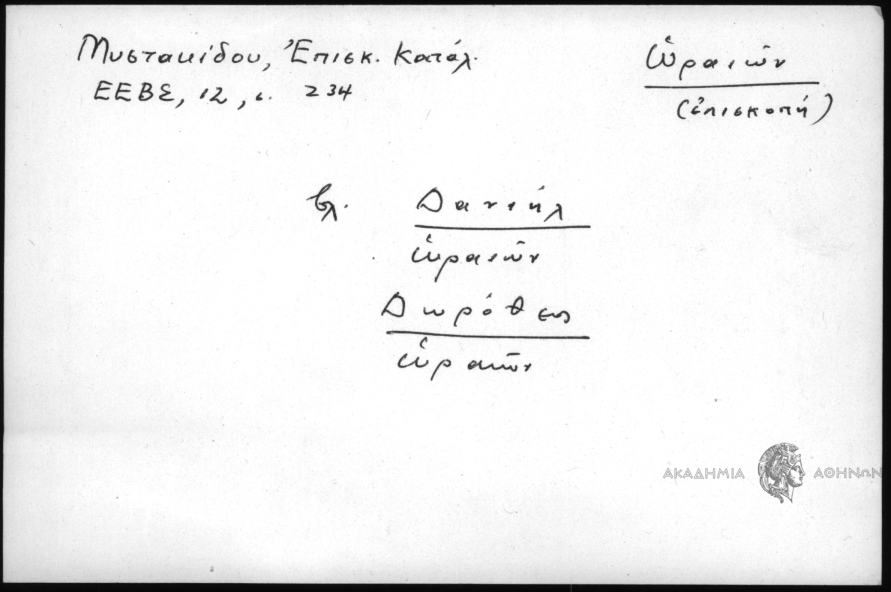 Μυστακίδου, Ἐπισκ. Κατάλ.
ΕΕΒΣ, 12, σ. 234
Ὡραιῶν
(ἐπισκοπή)
βλ. Δανιήλ
ὡραιῶν
Δωρόθεος
ὡραιῶν
ΑΚΑΔΗΜΙΑ ΑΘΗΝΩΝ